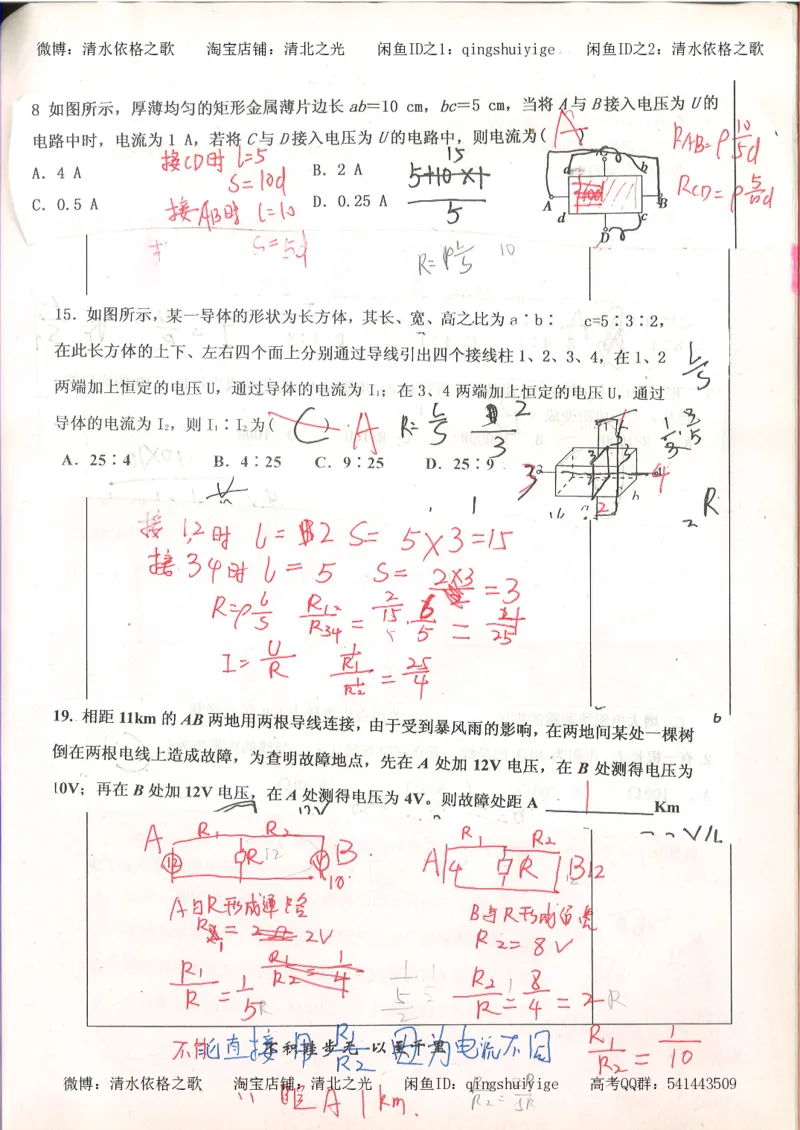 微博：清水依格之歌 淘宝店铺：清北之光 闲鱼ID之1：qingshuiyige 闲鱼ID之2：清水依格之歌
8 如图所示，厚薄均匀的矩形金属薄片边长 ab＝10 cm，bc＝5 cm，当将 A 与 B 接入电压为 U 的
电路中时，电流为 1 A，若将 C 与 D 接入电压为 U 的电路中，则电流为( A )
A．4 A B．2 A
C．0.5 A D．0.25 A
接CD时 l=5
S=10d
接AB时 l=10
S=5d
15
5+10×1
5
R=ρ
10
RAB=ρ 10/5d
RCD=ρ 5/10d
A B C D d c
15．如图所示，某一导体的形状为长方体，其长、宽、高之比为 a：b： c=5：3：2，
在此长方体的上下、左右四个面上分别通过导线引出四个接线柱 1、2、3、4，在 1、2
两端加上恒定的电压 U，通过导体的电流为 I₁；在 3、4 两端加上恒定的电压 U，通过
导体的电流为 I₂，则 I₁：I₂ 为( C ) A
A．25：4 B．4：25 C．9：25 D．25：9
接 1,2时 l=2 S= 5×3=15
接 34时 l= 5 S= 2×3
R=ρ l/S R12/R34 = 2/15 · 6/5 = 4/25
I= U/R = 25/4
19. 相距 11km 的 AB 两地用两根导线连接，由于受到暴风雨的影响，在两地间某处一棵树
倒在两根电线上造成故障，为查明故障地点，先在 A 处加 12V 电压，在 B 处测得电压为
10V；再在 B 处加 12V 电压，在 A 处测得电压为 4V。则故障处距 A 1 Km
12V
A R1 R2 B
12 R 12 V
10
A 4 R1 R2 R B 12
A与R形成通路
R1= 2V
B与R形成
R2= 8V
R1/R = 1/5
R1/R2 = 1/4
R2/R = 8/4 = 2
不能直接用 R1/R2 因为电流不同
R1/R2 = 1/10
微博：清水依格之歌 淘宝店铺：清北之光 闲鱼ID：qingshuiyige 高考QQ群：541443509
距A 1km.